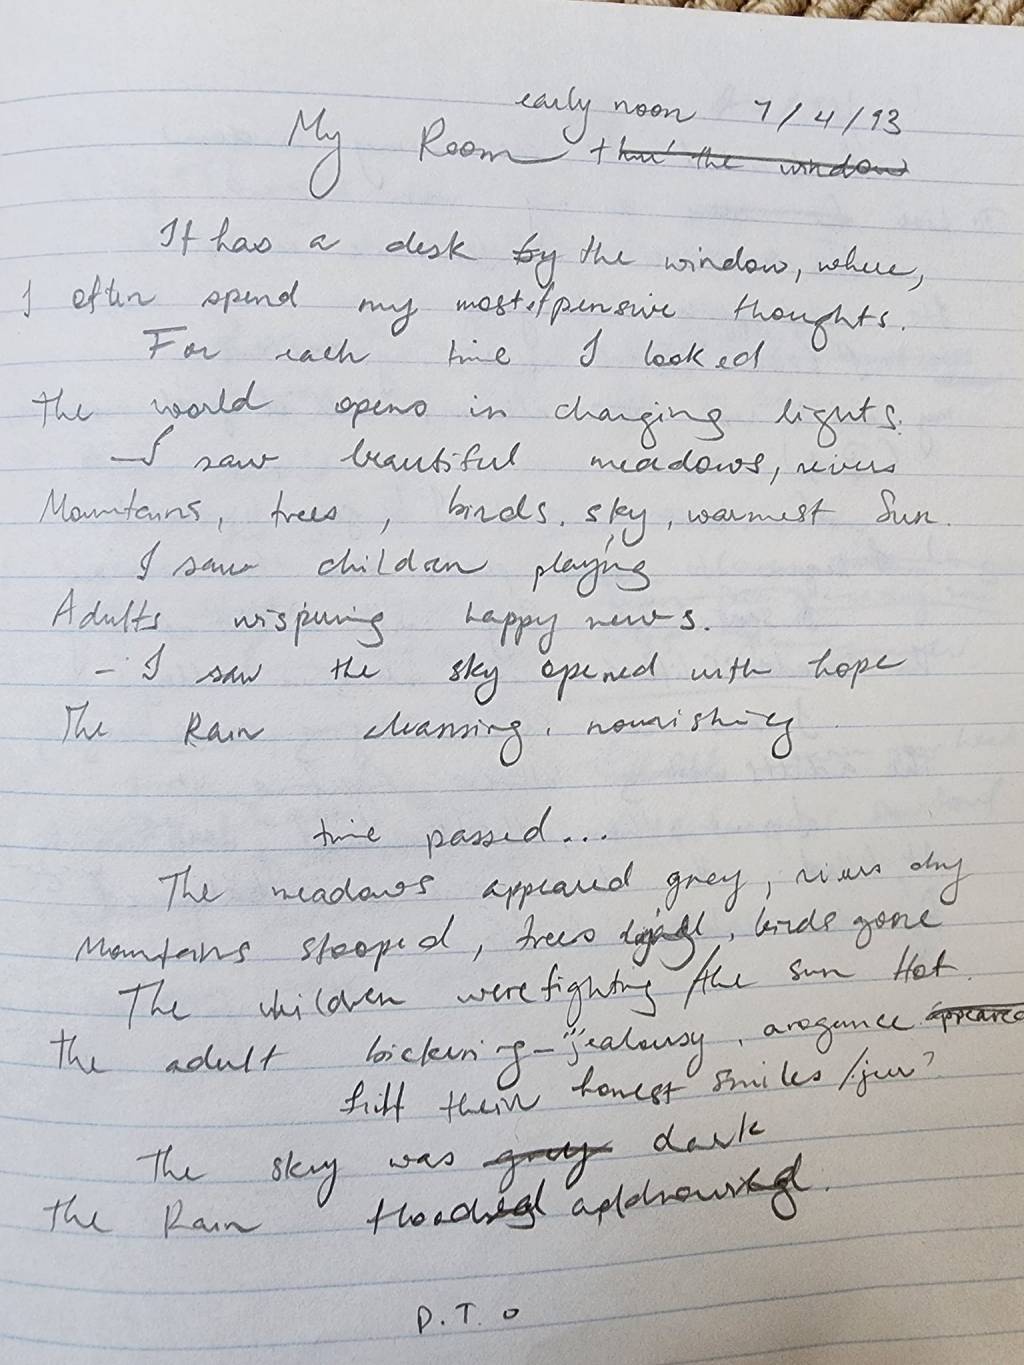 early noon 7/4/93
My Room thru' the window
It has a desk by the window, where,
I often spend my most pensive thoughts.
For each time I looked
the world opens in changing lights.
- I saw beautiful meadows, rivers
Mountains, trees, birds, sky, warmest Sun.
I saw children playing
Adults wispering happy news.
- I saw the sky opened with hope
The Rain cleansing, nourishing
time passed...
The meadows appeared grey, rivers dry
Mountains stooped, trees, birds gone
The children were fighting / the sun Hot.
the adult bickering - "jealousy, arogance appeared
their honest smiles /
The sky was grey dark
the Rain
P.T.O